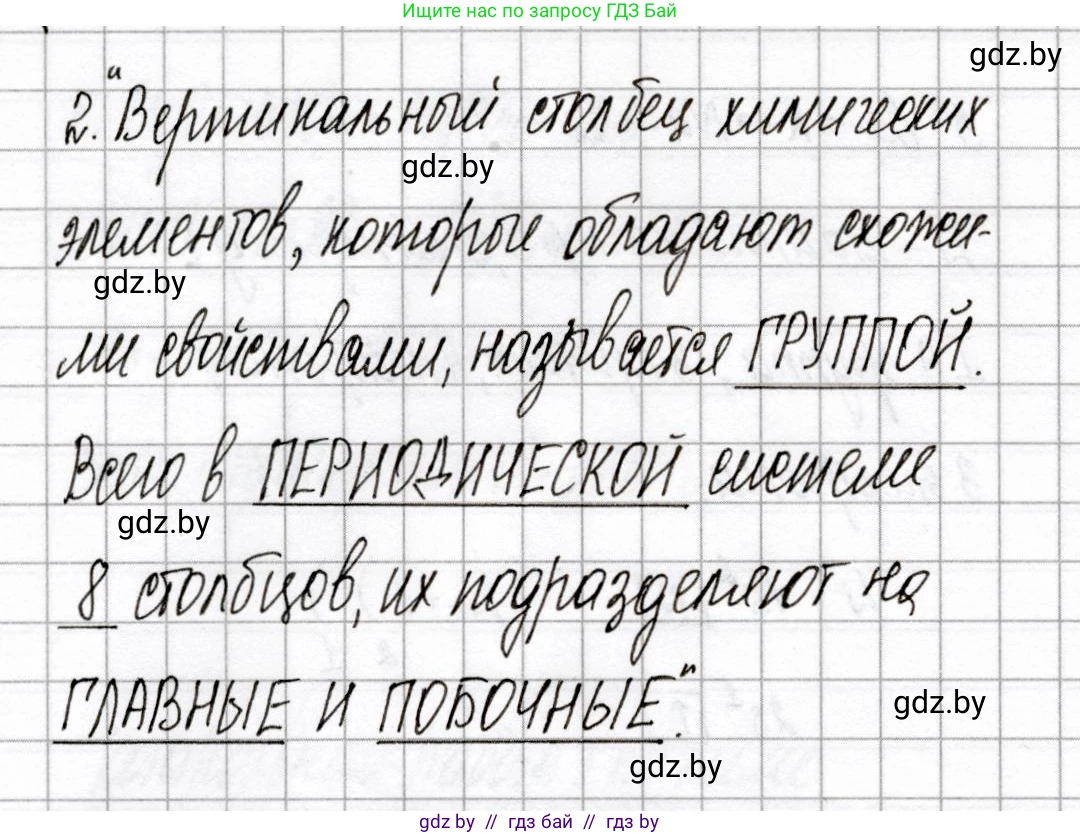 Ищите нас по запросу ГДЗ Бай
gdz.by
2. "Вертикальный столбец химических
gdz.by
элементов, которые обладают схожи-
gdz.by
ми свойствами, называется ГРУППОЙ.
Всего в ПЕРИОДИЧЕСКОЙ системе
gdz.by
8 столбцов, их подразделяют на
ГЛАВНЫЕ И ПОБОЧНЫЕ".
gdz.by
gdz.by
gdz.by // гдз бай // gdz.by